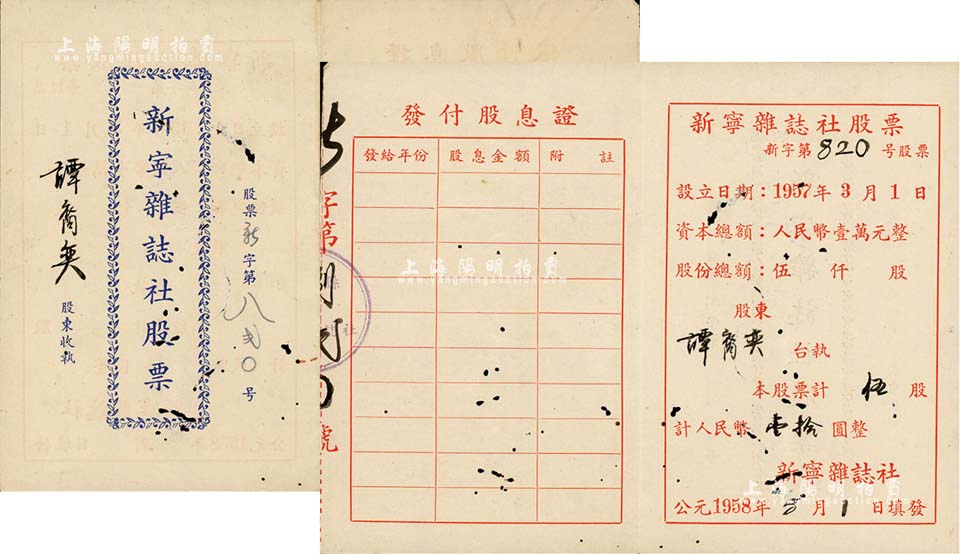 上海陽明拍賣
www.yangmingauction.com
新寧雜誌社股票
股票新字第八弍〇号
股東收執
發付股息證
發給年份
股息金額
附註
字第
號
上海陽明拍賣
www.yangmingauction.com
新寧雜誌社股票
新字第820号股票
設立日期：1957年3月1日
資本總額：人民幣壹萬元整
股份總額：伍仟股
股東
譚裔奕台執
本股票計伍股
計人民幣壹拾圓整
新寧雜誌社
公元1958年3月1日填發
上海陽明拍賣
www.yangmingauction.com